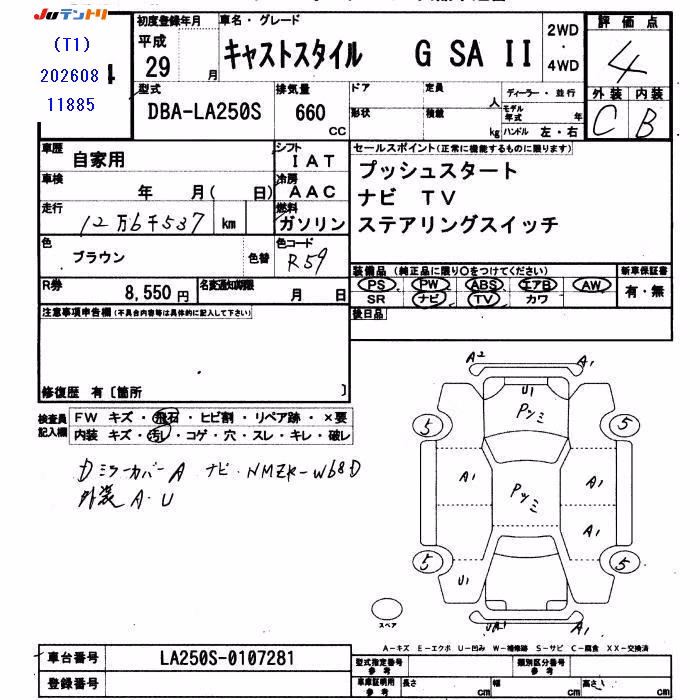 Juテントリ
(T1)
202608
11885
初度登録年月
平成
29 月
車名・グレード
キャストスタイル G SA II
2WD
・
4WD
評価点
4
外装 内装
C B
型式
DBA-LA250S
排気量
660
CC
ドア
定員
人
形状
積載
kg
ディーラー・並行
モデル年式 年
ハンドル 左・右
車歴
自家用
シフト
IAT
車検
年 月( 日)
冷房
AAC
走行
12万6千537 km
燃料
ガソリン
色
ブラウン
色替
色コード
R59
R券
8,550円
名変通知期限
月 日
セールスポイント(正常に機能するものに限ります)
プッシュスタート
ナビ TV
ステアリングスイッチ
装備品(純正品に限り○をつけてください)
PS PW ABS エアB AW
SR ナビ TV カワ
新車保証書
有・無
後日品
注意事項申告欄(不具合内容等は具体的に記入して下さい)
修復歴 有〔箇所 〕
検査員記入欄
FW キズ・飛石・ヒビ割・リペア跡・×要
内装 キズ・汚れ・コゲ・穴・スレ・キレ・破レ
DミラーカバーA ナビ・NMZK-W68D
外装 A・U
A2 A1
U1
Pッミ
5 5
A1 Pッミ A1
A1
5 5
U1
A1
スペア
A-キズ E-エクボ U-凹み W-補修跡 S-サビ C-腐食 XX-交換済
車台番号 LA250S-0107281
登録番号
型式指定番号
参考
類別区分番号
参考
車庫証明用
参考
長さ cm 幅 cm 高さ cm